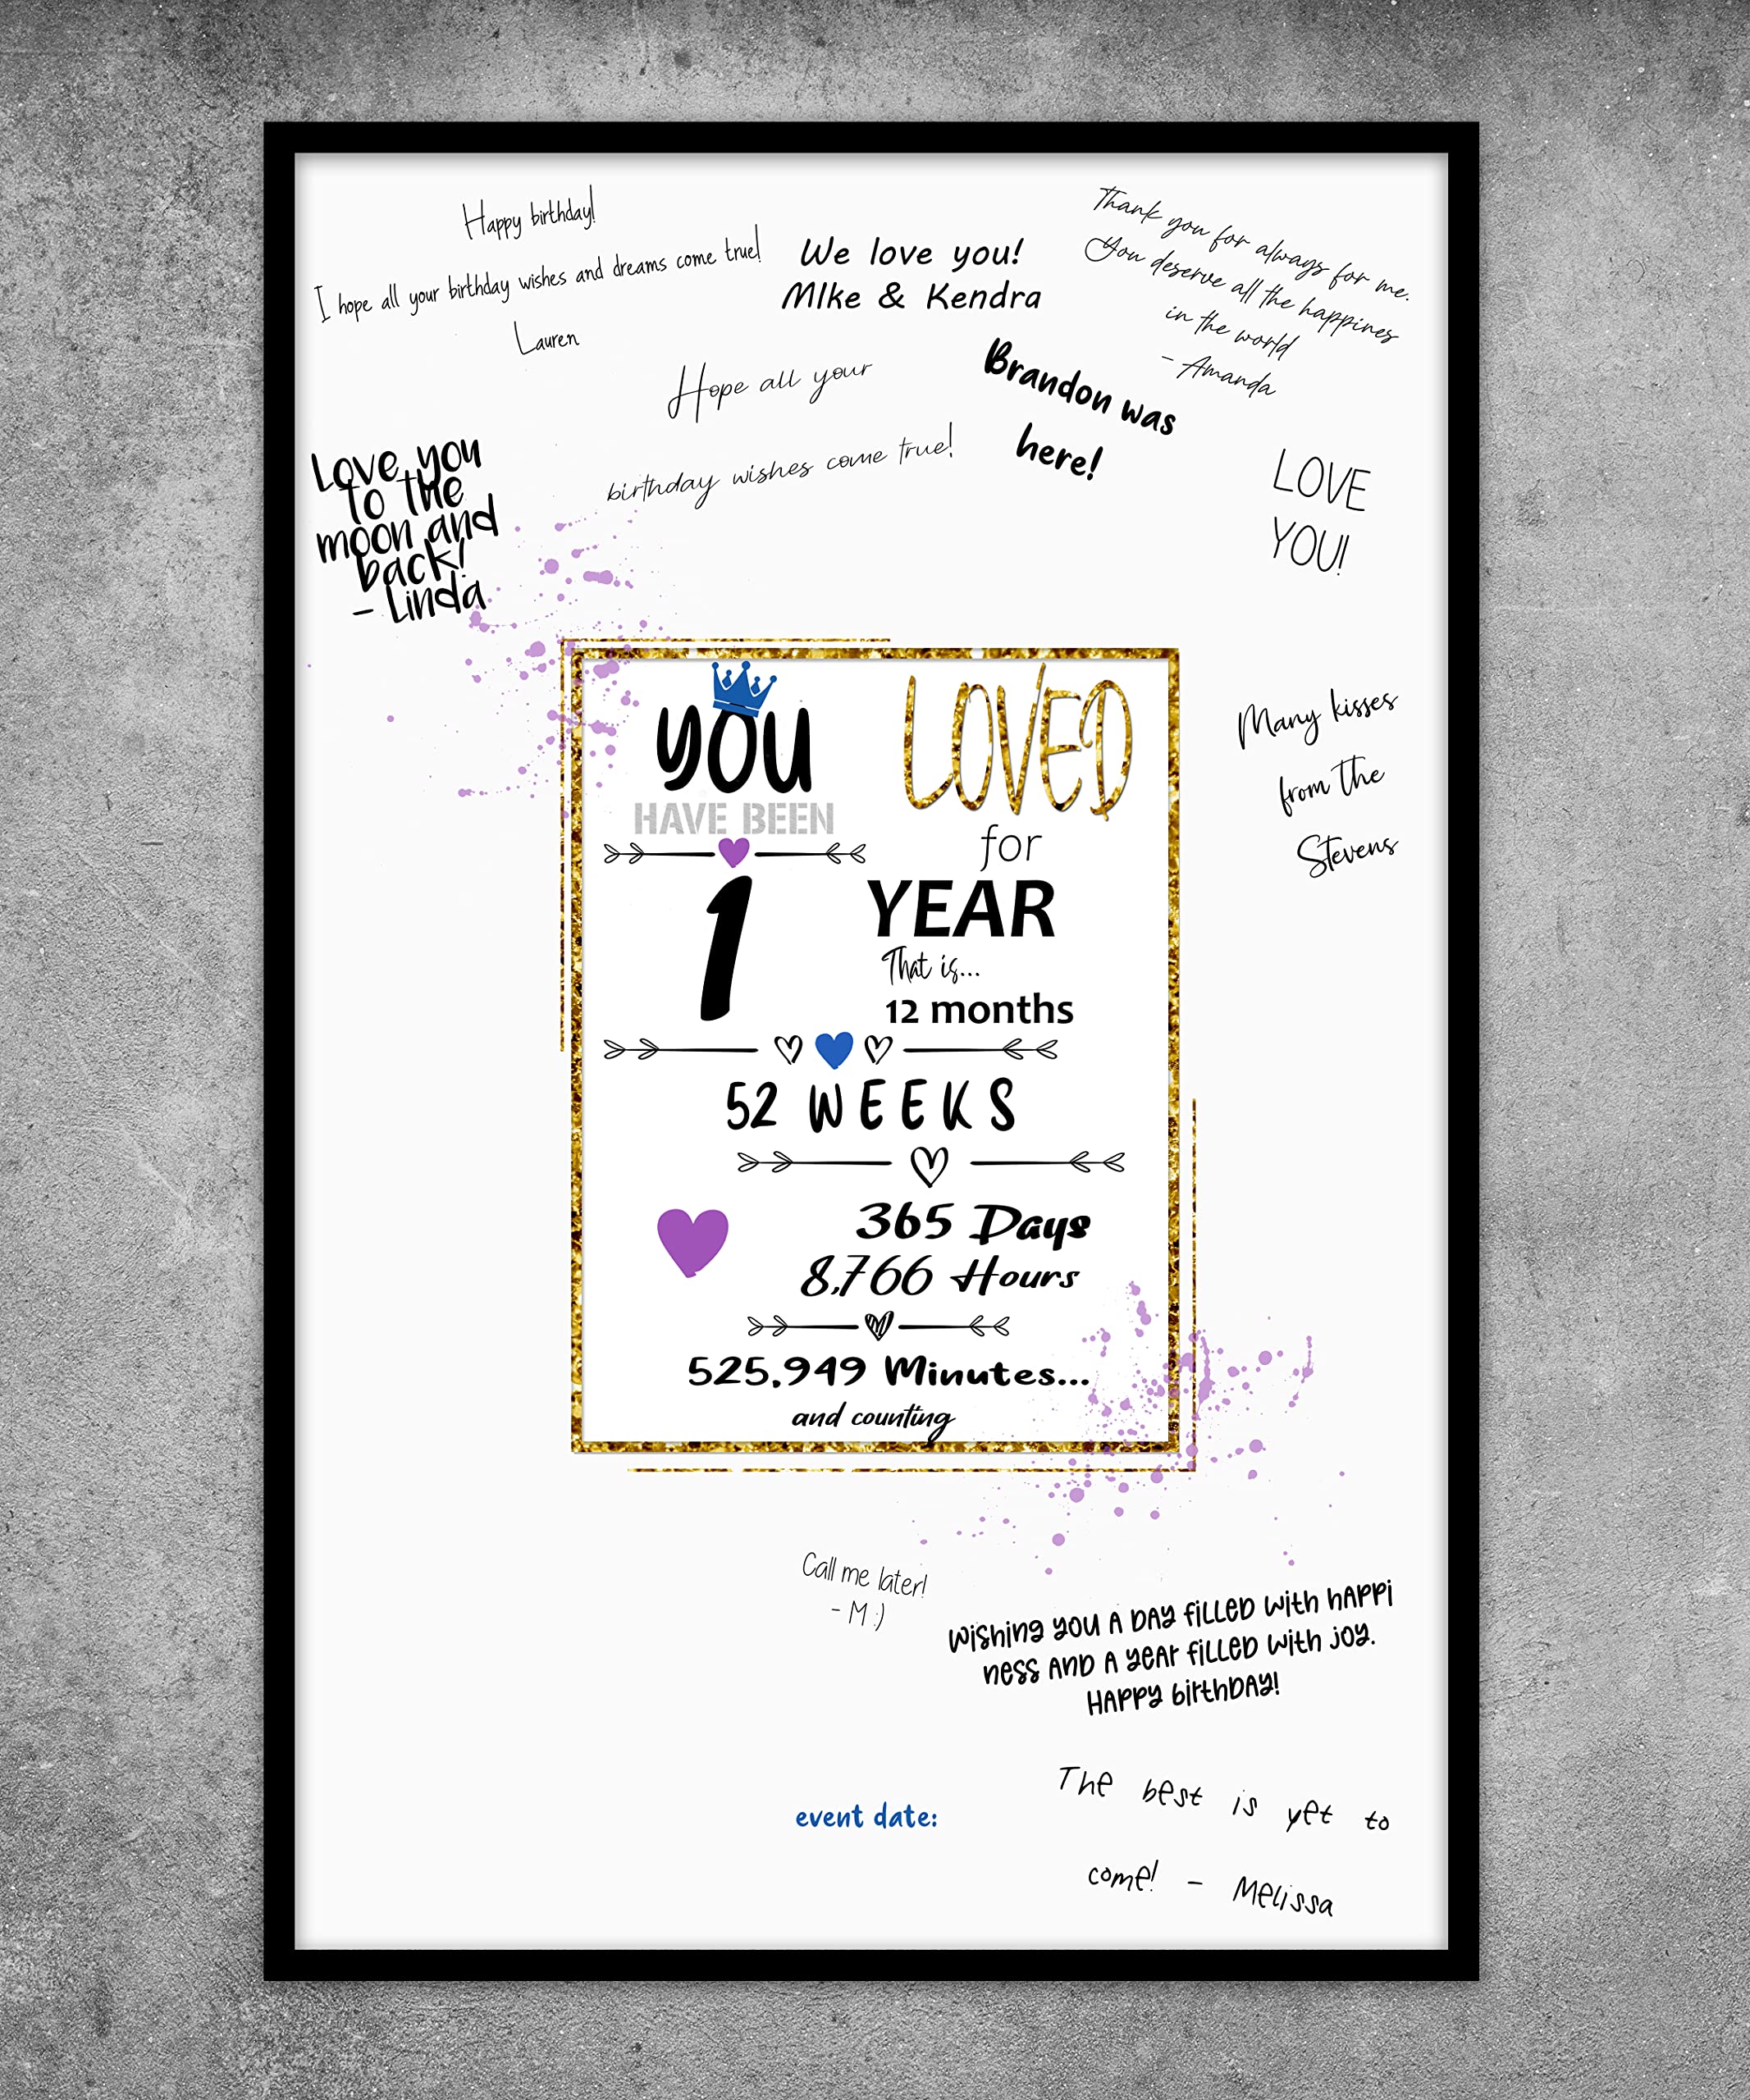 Happy birthday!
I hope all your birthday wishes and dreams come true!
Lauren
We love you!
MIke & Kendra
Thank you for always for me.
You deserve all the happines
in the world
- Amanda
Hope all your
birthday wishes come true!
Brandon was
here!
Love you
to the
moon and
back!
- Linda
LOVE
YOU!
Many kisses
from the
Stevens
YOU
HAVE BEEN
LOVED
for
1
YEAR
That is...
12 months
52 WEEKS
365 Days
8,766 Hours
525,949 Minutes...
and counting
Call me later!
- M :)
Wishing you a day filled with happi
ness and a year filled with joy.
Happy birthday!
event date:
The best is yet to
come! - Melissa